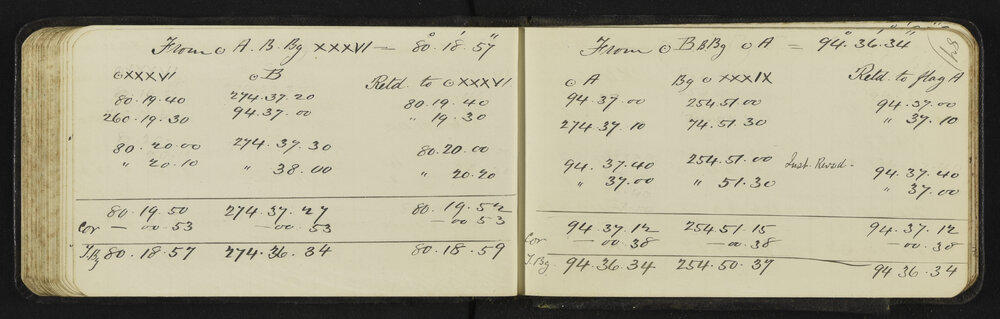 From ⊙ A. B. Bg XXXVI = 80°.18'.57"
⊙XXXVI ⊙B Retd. to ⊙XXXVI
80.19.40 274.37.20 80.19.40
260.19.30 94.37.00 " 19.30
80.20.00 274.37.30 80.20.00
" 20.10 " 38.00 " 20.20
80.19.50 274.37.27 80.19.52
Cor — 00.53 — 00.53 — 00 53
T.Bg 80.18.57 274.36.34 80.18.59
From ⊙ B B Bg ⊙ A = 94°.36'.34"
⊙ A Bg ⊙ XXXIX Retd. to flag A
94.37.00 254.51.00 94.37.00
274.37.10 74.51.30 " 37.10
94.37.40 254.51.00 Inst. Revsd. 94.37.40
" 37.00 " 51.30 " 37.00
94.37.12 254.51.15 94.37.12
Cor — 00.38 — 00.38 — 00.38
T.Bg. 94.36.34 254.50.37 94 36.34